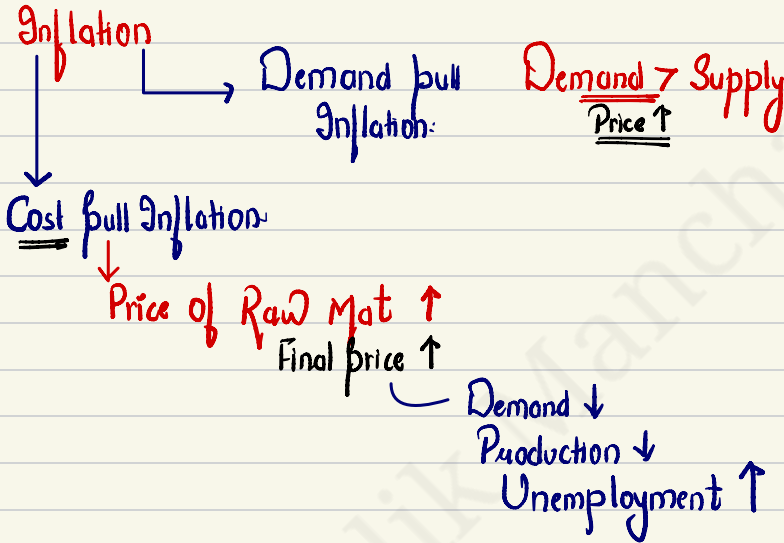 Inflation
Demand pull
Inflation:
Demand > Supply
Price ↑
Cost pull Inflation
Price of Raw Mat ↑
Final price ↑
Demand ↓
Production ↓
Unemployment ↑